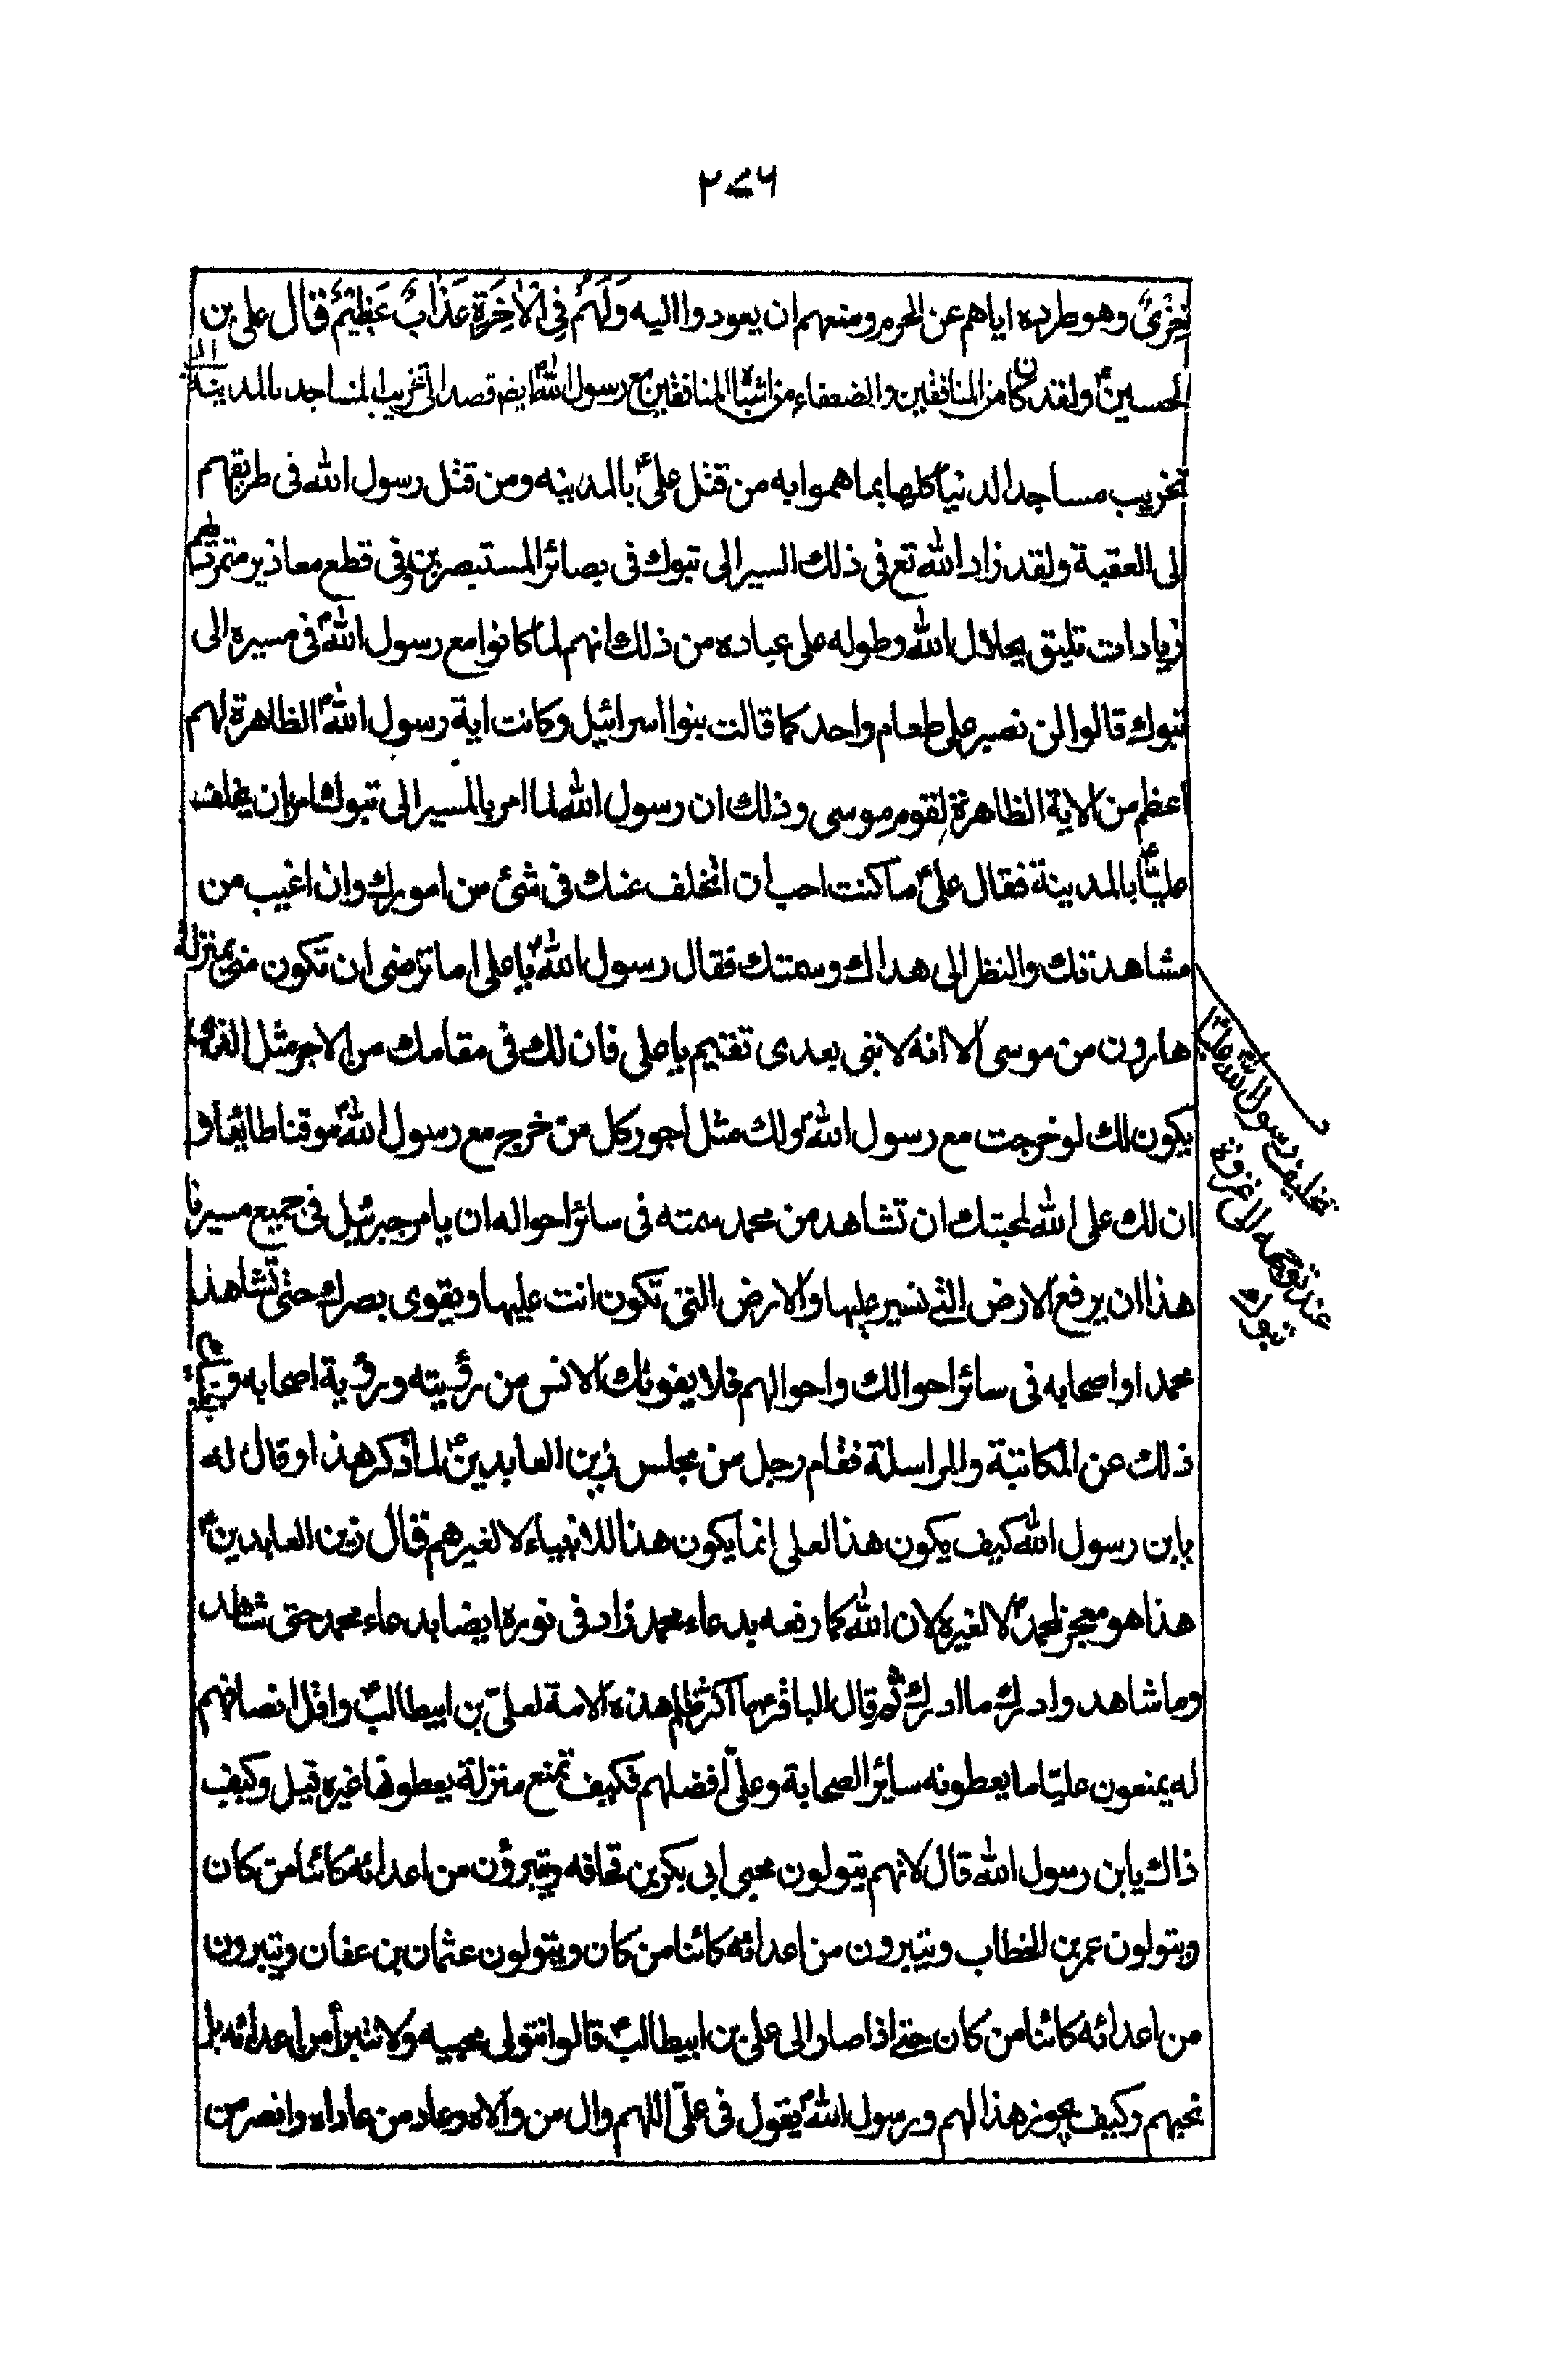 ٢٧٦
خِزْىٌ وهو طرده اياهم عن الحرم ومنعهم ان يعودوا اليه وَلَهُمْ فِى الْاٰخِرَةِ عَذَابٌ عَظِيْمٌ قال على بن
الحسينؑ ولقد كان من المنافقين والضعفاء من اشباه المنافقين مع رسول اللهؐ ايضا قصد الى تخريب المساجد بالمدينة الى
تخريب مساجد الدنيا كلها بما هموا به من قتل علىؑ بالمدينه ومن قتل رسول الله فى طريقهم
الى العقبة ولقد زاد الله تع فى ذلك السير الى تبوك فى بصائر المستبصرين وفى قطع معاذير متمرديهم
زيادات تليق بجلال الله وطوله على عباده من ذلك انهم لما كانوا مع رسول اللهؐ فى مسيره الى
تبوك قالوا لن نصبر على طعام واحد كما قالت بنوا اسرائيل وكانت اية رسول اللهؐ الظاهرة لهم
اعظم من الاية الظاهرة لقوم موسى وذلك ان رسول الله لما امر بالمسير الى تبوك امر بان يخلف
علياؑ بالمدينة فقال علىؑ ما كنت احب ان اتخلف عنك فى شئ من امورك وان اغيب من
مشاهدتك والنظر الى هداك وسمتك فقال رسول اللهؐ يا على اما ترضى ان تكون منى بمنزلة
هارون من موسى الا انه لا نبى بعدى تقيم يا على فان لك فى مقامك من الاجر مثل الذى
يكون لك لو خرجت مع رسول اللهؐ ولك مثل اجور كل من خرج مع رسول اللهؐ موقنا طايعا و
ان لك على الله لمحبتك ان تشاهد من محمد سمته فى سائر احواله ان يامر جبرئيل فى جميع مسيرنا
هذا ان يرفع الارض التى نسير عليها والارض التى تكون انت عليها ويقوى بصرك حتى تشاهد
محمدا واصحابه فى سائر احوالك واحوالهم فلا يفوتك الانس من رؤيته ورؤية اصحابه ويغنيك
ذلك عن المكاتبة والمراسلة فقام رجل من مجلس زين العابدينؑ لما ذكر هذا وقال له
يابن رسول الله كيف يكون هذا لعلى انما يكون هذا للانبياء لا لغيرهم قال زين العابدينؑ
هذا هو معجز لمحمدؐ لا لغيره لان الله كما رفعه بدعاء محمد زاد فى نوره ايضا بدعاء محمد حتى شاهد
وما شاهد وادرك ما ادرك ثم قال الباقرؑ ما اكثر ظلم هذه الامة لعلى بن ابيطالبؑ واقل انصافهم
له يمنعون عليّا ما يعطونه سائر الصحابة وعلىّ افضلهم فكيف تمنع منزلة يعطونها غيره قيل وكيف
ذاك يابن رسول الله قال لانهم يتولون محبى ابى بكر بن قحافه ويتبرؤن من اعدائه كائنا من كان
ويتولون عمر بن الخطاب ويتبرون من اعدائه كائنا من كان ويتولون عثمان بن عفان ويتبرون
من اعدائه كائنا من كان حتى اذا صار الى على بن ابيطالبؑ قالوا نتولى محبيه ولا نتبرأ من اعدائه بل
نحبهم وكيف يجوز هذا لهم ورسول اللهؐ يقول فى علىّ اللهم وال من والاه وعاد من عاداه وانصر من
تخليف رسول الله علياؑ
عند توجهه الى غزوة
تبوك